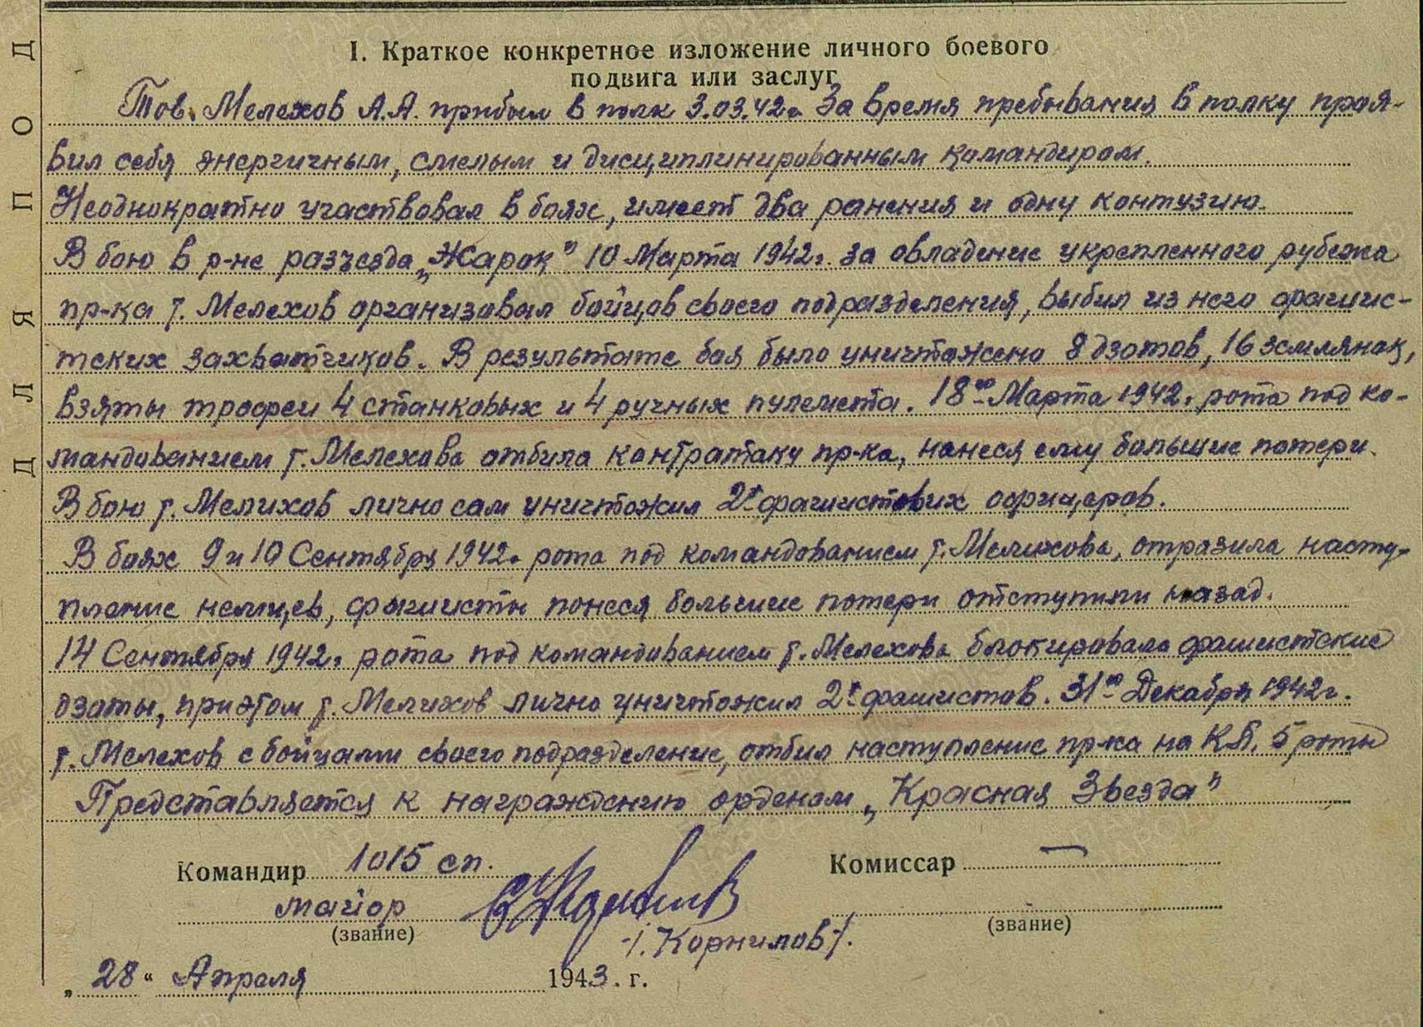 I. Краткое конкретное изложение личного боевого
подвига или заслуг
Тов. Мелехов А.А. прибыл в полк 3.03.42г. За время пребывания в полку проя-
вил себя энергичным, смелым и дисциплинированным командиром.
Неоднократно участвовал в боях, имеет два ранения и одну контузию.
В бою в р-не разъезда „Жарок" 10 Марта 1942г. за овладение укрепленного рубежа
пр-ка т. Мелехов организовал бойцов своего подразделения, выбил из него фашис-
тских захватчиков. В результате боя было уничтожено 8 дзотов, 16 землянок,
взяты трофеи 4 станковых и 4 ручных пулемета. 18го Марта 1942г. рота под ко-
мандованием т. Мелехова отбила контратаку пр-ка, нанеся ему большие потери.
В бою т. Мелихов лично сам уничтожил 2х фашистских офицеров.
В боях 9 и 10 Сентября 1942г. рота под командованием т. Мелихова, отразила насту-
пление немцев, фашисты понеся большие потери отступили назад.
14 Сентября 1942г. рота под командованием т. Мелехова блокировала фашистские
дзоты, приэтом т. Мелихов лично уничтожил 2х фашистов. 31го Декабря 1942г.
т. Мелехов с бойцами своего подразделение, отбил наступление пр-ка на К.П. 5 роты
Представляется к награждению орденом „Красная Звезда"
Командир 1015 сп. Комиссар —
майор
(звание) (звание)
/. Корнилов /.
„28" Апреля 1943. г.
ДЛЯ ПОД